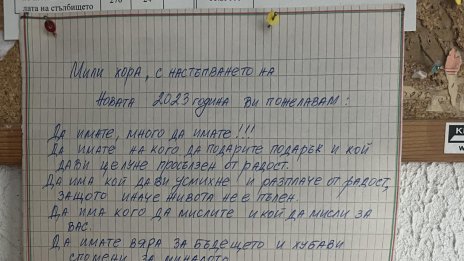 дата на стълбището
Мили хора, с настъпването на
Новата 2023 година Ви пожелавам:
Да имате, много да имате!!!
Да имате на кого да подарите подарък и кой
да Ви целуне просълзен от радост.
Да има кой да Ви усмихне и разплаче от радост,
защото иначе живота не е пълен.
Да има кого да мислите и кой да мисли за
Вас.
Да имате вяра за бъдещето и хубави
спомени за миналото